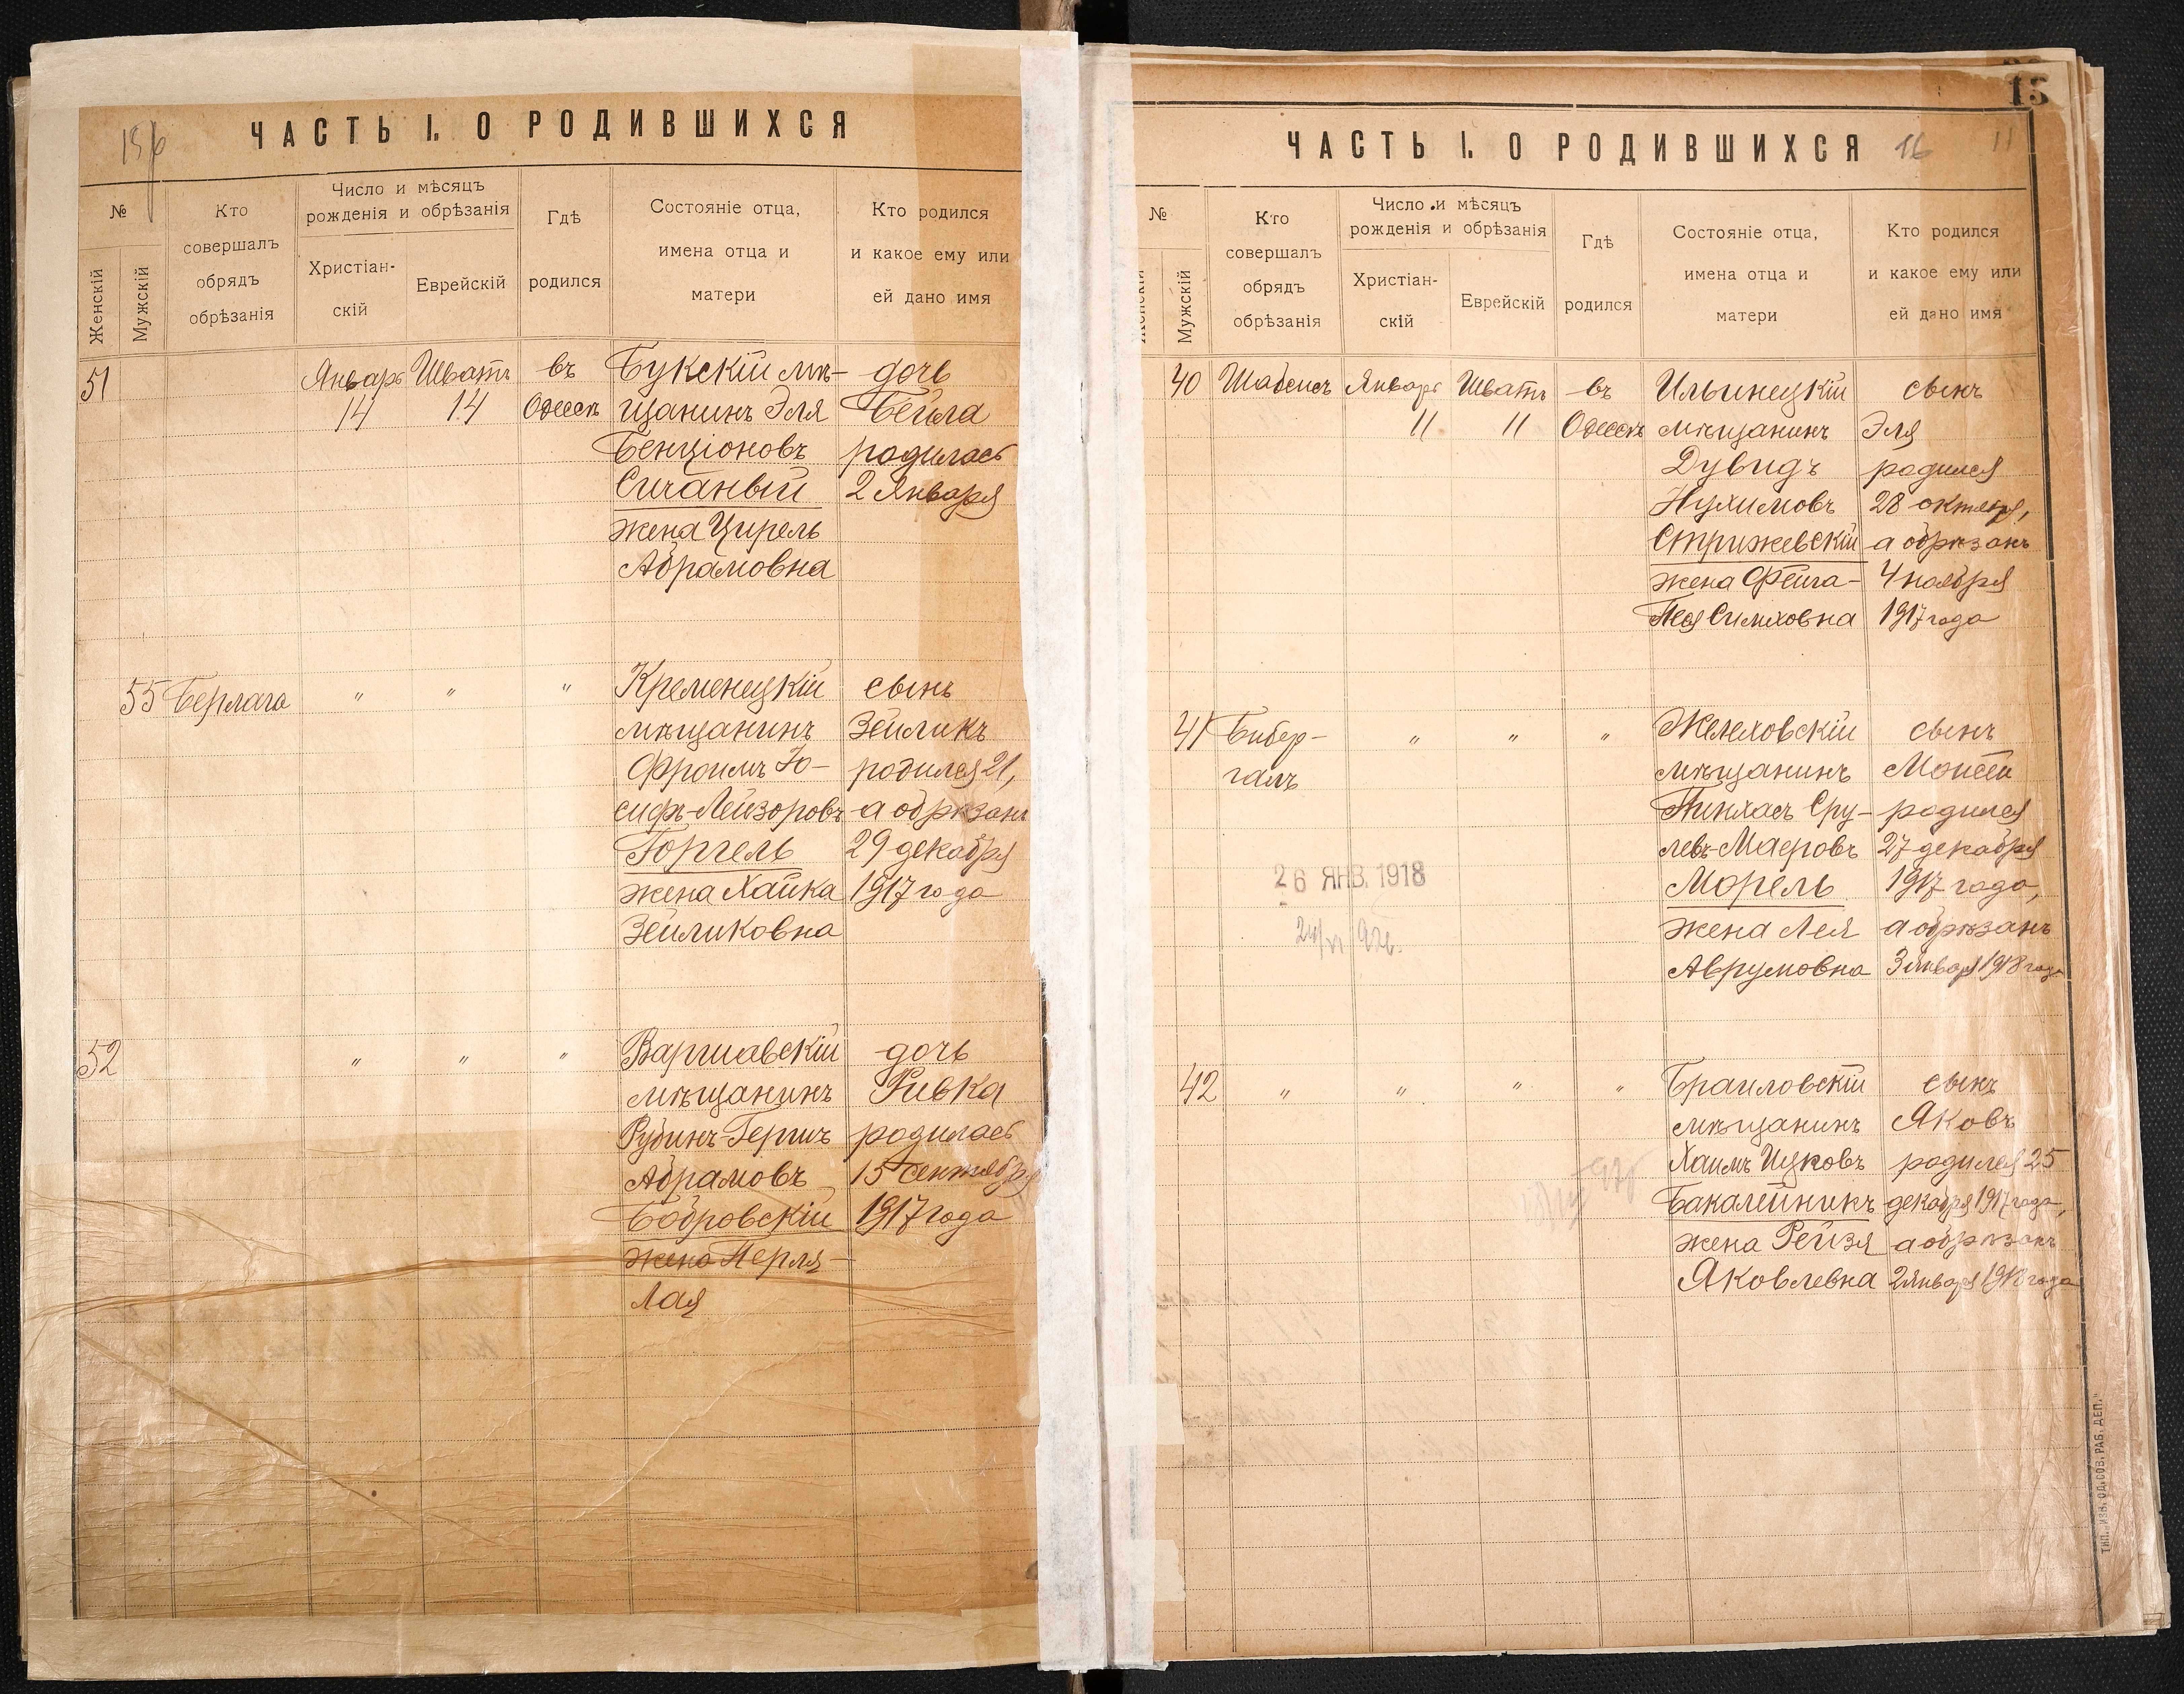 ЧАСТЬ I. О РОДИВШИХСЯ
№
Женскій
Мужскій
Кто
совершалъ
обрядъ
обрѣзанія
Число и мѣсяцъ
рожденія и обрѣзанія
Христіан-
скій
Еврейскій
Гдѣ
родился
Состояніе отца,
имена отца и
матери
Кто родился
и какое ему или
ей дано имя
51
Январь
14
Шватъ
14
въ
Одессѣ
Букскій мѣ-
щанинъ Эля
Бенціоновъ
Сичаный
жена Цирель
Абрамовна
дочь
Бейла
родилась
2 Января
55
Берлага
"
"
"
Кременецкій
мѣщанинъ
Фроимъ Іо-
сифъ-Лейзоровъ
Горгель
жена Хайка
Зейликовна
сынъ
Зейликъ
родился 21,
а обрѣзанъ
29 декабря
1917 года
52
"
"
"
Варшавскій
мѣщанинъ
Рубинъ-Гершъ
Абрамовъ
Бобровскій
жена Перля-
Лая
дочь
Ривка
родилась
15 сентября
1917 года
15
ЧАСТЬ I. О РОДИВШИХСЯ
16
11
№
Женскій
Мужскій
Кто
совершалъ
обрядъ
обрѣзанія
Число и мѣсяцъ
рожденія и обрѣзанія
Христіан-
скій
Еврейскій
Гдѣ
родился
Состояніе отца,
имена отца и
матери
Кто родился
и какое ему или
ей дано имя
40
Шабсисъ
Январь
11
Шватъ
11
въ
Одессѣ
Ильинецкій
мѣщанинъ
Дувидъ
Нухимовъ
Стрижевскій
жена Фейга-
Песя Симховна
сынъ
Эля
родился
28 октября,
а обрѣзанъ
4 ноября
1917 года
41
Бибер-
галъ
"
"
"
Желеховскій
мѣщанинъ
Пинхасъ Сру-
левъ-Маеровъ
Морель
жена Лея
Аврумовна
сынъ
Моисей
родился
27 декабря
1917 года,
а обрѣзанъ
3 января 1918 года
26 ЯНВ. 1918
42
"
"
"
"
Браиловскій
мѣщанинъ
Хаимъ Ицковъ
Бакалейникъ
жена Рейзя
Яковлевна
сынъ
Яковъ
родился 25
декабря 1917 года,
а обрѣзанъ
2 января 1918 года
ТИП. „ИЗВ. ОД. СОВ. РАБ. ДЕП."